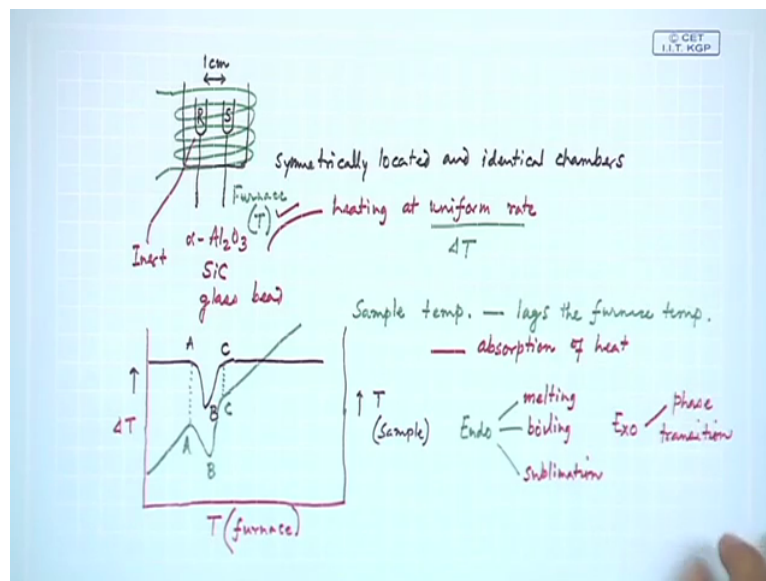 © CET
I.I.T. KGP
1cm
R S
symmetrically located and identical chambers
Furnace
(T)
heating at uniform rate
ΔT
Inert
α-Al2O3
SiC
glass bead
Sample temp. — lags the furnace temp.
— absorption of heat
A C
B
C
A
B
ΔT
T
(Sample)
T (furnace)
Endo
melting
boiling
sublimation
Exo
phase
transition